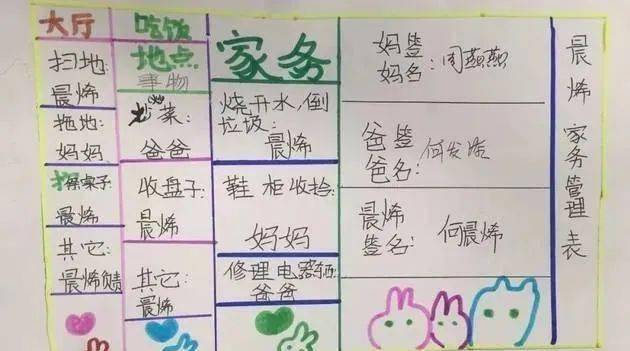 大厅
扫地:
晨烯
拖地:
妈妈
擦桌子
晨烯
其它:
晨烯负责
吃饭
地点
事物
炒菜:
爸爸
收盘子:
晨烯
其它:
晨烯
家务
烧开水,倒
垃圾:
晨烯
鞋柜收拾
妈妈
修理电器东西
爸爸
妈签
妈名:周燕燕
爸签
爸名:何发
晨烯
签名: 何晨烯
晨烯家务管理表